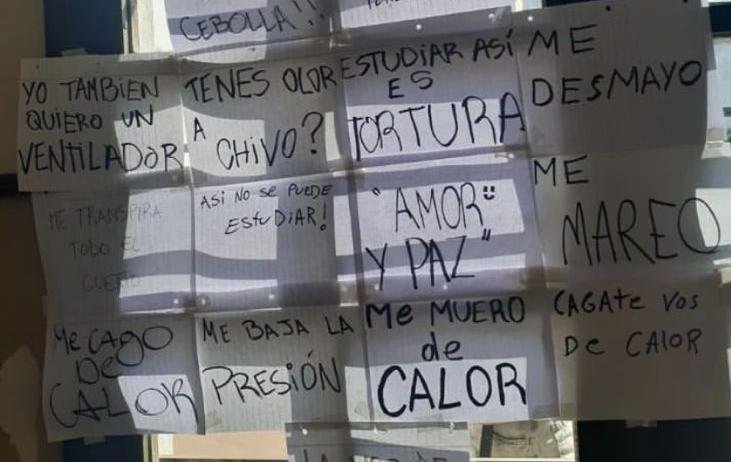 CEBOLLA!!
YO TAMBIEN
QUIERO UN
VENTILADOR
TENES OLOR
A
CHIVO?
ESTUDIAR ASÍ
ES
TORTURA
ME
DESMAYO
ME TRANSPIRA
TODO EL
CUERPO
ASI NO SE PUEDE
EStuDiAR!
"AMOR
Y PAZ"
ME
MAREO
Me CAgO
De
CALOR
ME BAJA LA
PRESIÓN
Me MUERO
de
CALOR
CAGAte Vos
De CAlOR